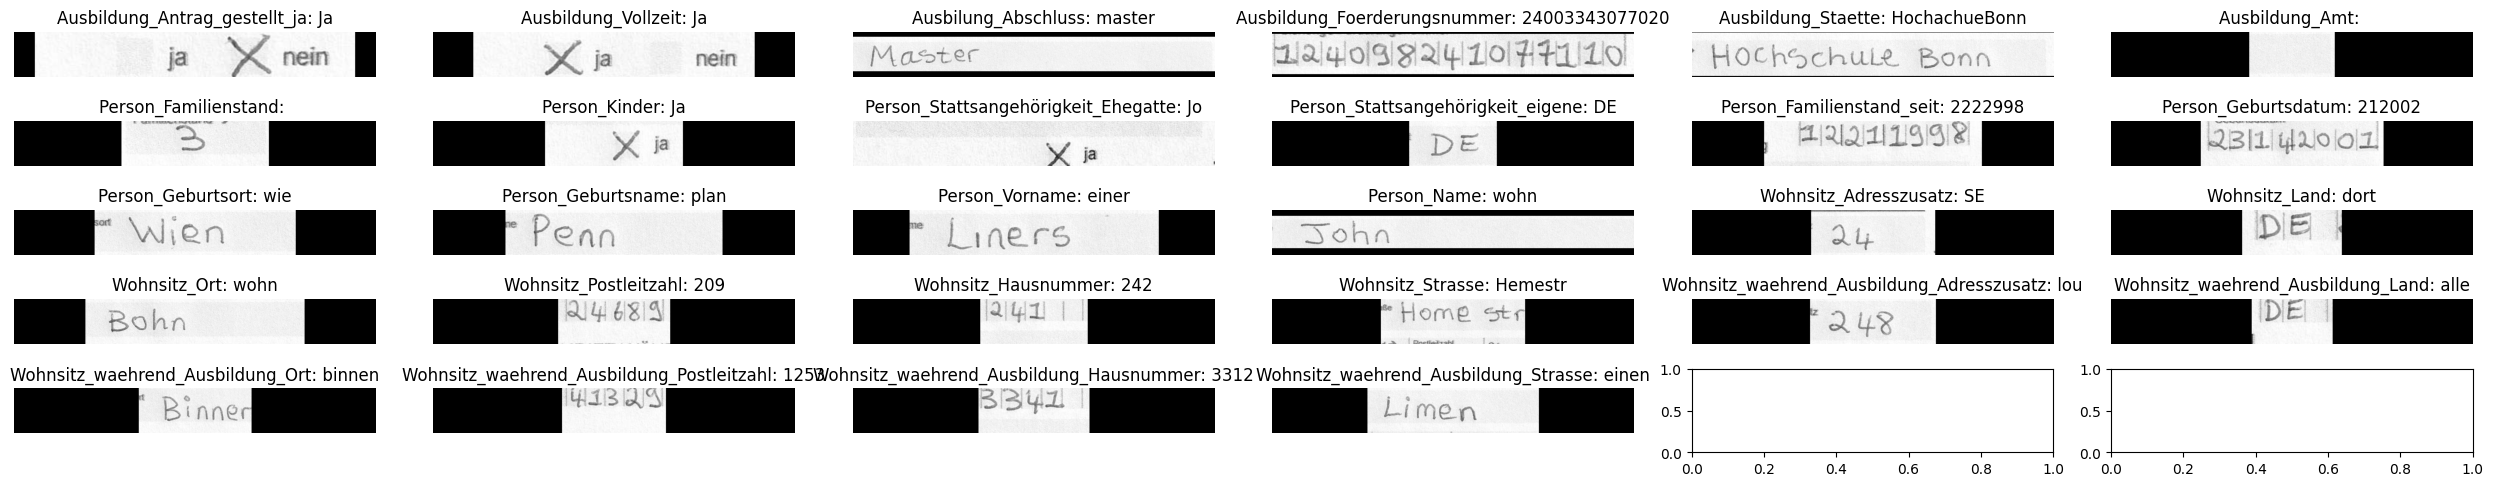 Ausbildung_Antrag_gestellt_ja: Ja
ja X nein
Ausbildung_Vollzeit: Ja
X ja nein
Ausbilung_Abschluss: master
Master
Ausbildung_Foerderungsnummer: 24003343077020
12409824107710
Ausbildung_Staette: HochachueBonn
Hochschule Bonn
Ausbildung_Amt:
Person_Familienstand:
3
Person_Kinder: Ja
X ja
Person_Stattsangehörigkeit_Ehegatte: Jo
X ja
Person_Stattsangehörigkeit_eigene: DE
DE
Person_Familienstand_seit: 2222998
12211998
Person_Geburtsdatum: 212002
23142001
Person_Geburtsort: wie
sort Wien
Person_Geburtsname: plan
me Penn
Person_Vorname: einer
me Liners
Person_Name: wohn
John
Wohnsitz_Adresszusatz: SE
24
Wohnsitz_Land: dort
DE
Wohnsitz_Ort: wohn
Bohn
Wohnsitz_Postleitzahl: 209
24689
Wohnsitz_Hausnummer: 242
241
Wohnsitz_Strasse: Hemestr
ße Home str
Postleitzahl
Wohnsitz_waehrend_Ausbildung_Adresszusatz: lou
tz 248
Wohnsitz_waehrend_Ausbildung_Land: alle
DE
Wohnsitz_waehrend_Ausbildung_Ort: binnen
rt Binner
Wohnsitz_waehrend_Ausbildung_Postleitzahl: 1253
41329
Wohnsitz_waehrend_Ausbildung_Hausnummer: 3312
3341
Wohnsitz_waehrend_Ausbildung_Strasse: einen
Limen
1.0
0.5
0.0
0.0 0.2 0.4 0.6 0.8 1.0
1.0
0.5
0.0
0.0 0.2 0.4 0.6 0.8 1.0